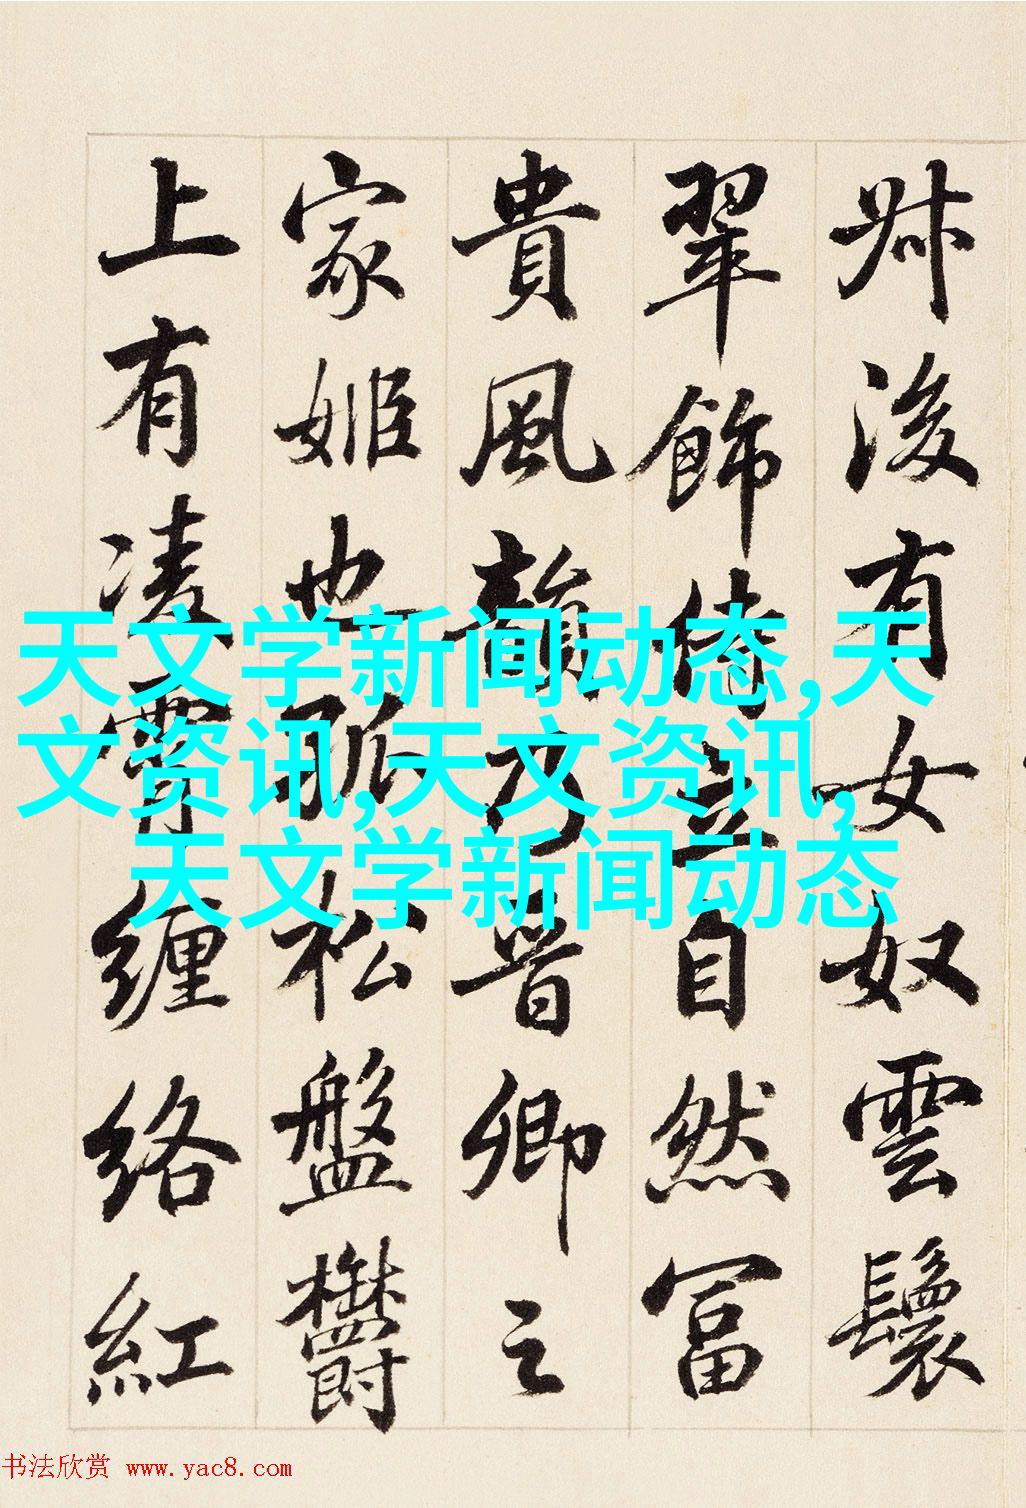 叔後有女奴雲鬟
翠飾侍立自然富
貴風韻乃晉卿之
家姬也孤松盤鬱
上有凌霄纏絡紅
天文学新闻动态,天
文资讯,天文资讯,
天文学新闻动态
书法欣赏 www.yac8.com